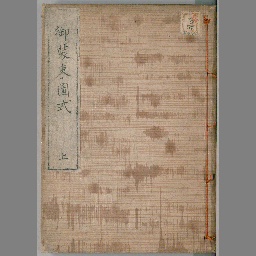 御装束圖式
上